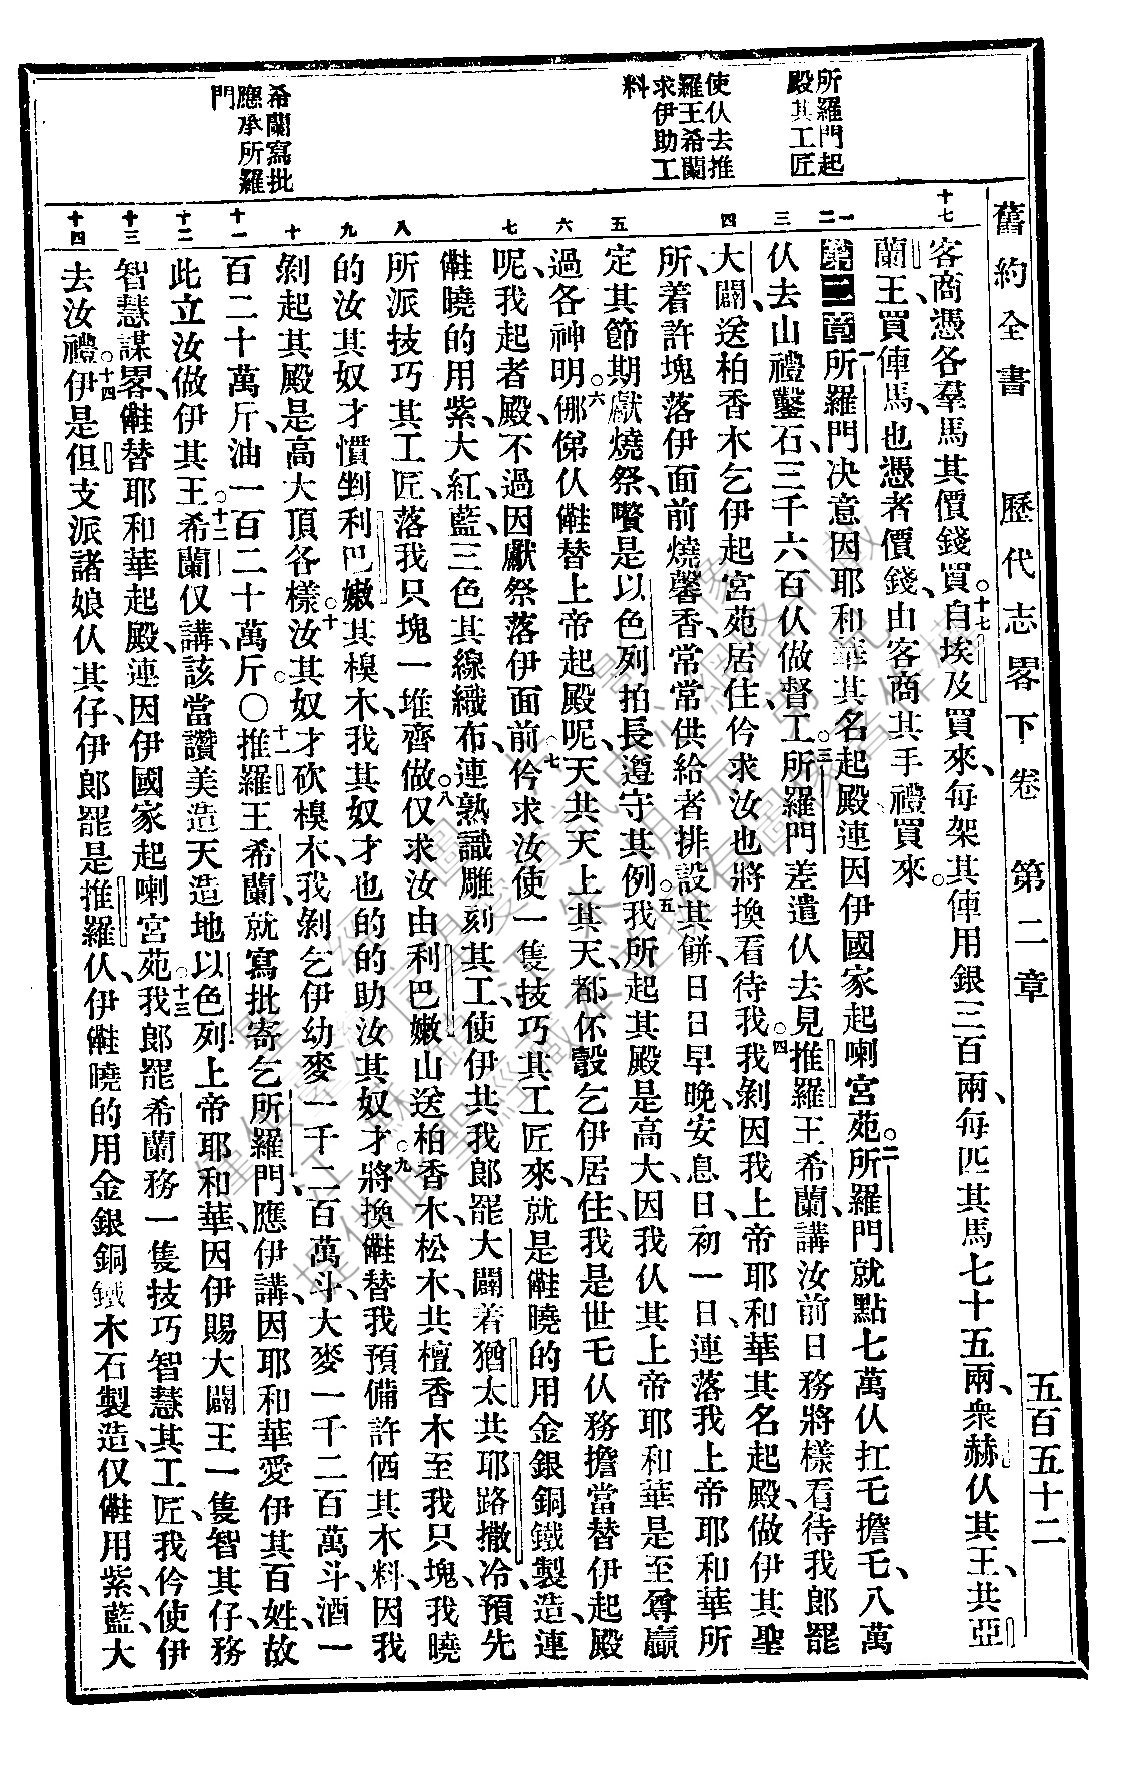 舊約全書 歷代志畧下卷 第二章 五百五十二
所羅門起
殿其工匠
使仈去推
羅王希蘭
求伊助工
料
希蘭寫批
應承所羅
門
十七
一
二
三
四
五
六
七
八
九
十
十一
十二
十三
十四
客商憑各羣馬其價錢買。十七自埃及買來、每架其俥用銀三百兩、每匹其馬七十五兩、衆赫仈其王、共亞
蘭王、買俥馬也憑者價錢、由客商其手禮買來。
第二章所羅門决意因耶和華其名起殿、連因伊國家起喇宮苑。二所羅門就點七萬仈扛乇擔乇、八萬
仈去山禮鑿石、三千六百仈做督工。三所羅門差遣仈去見推羅王希蘭、講汝前日務將樣看待我郎罷
大闢、送柏香木乞伊起宮苑居住、仱求汝也將換看待我。四我剝因我上帝耶和華其名起殿、做伊其聖
所、着許塊落伊面前燒馨香、常常供給者排設其餅、日日早晚、安息日、初一日、連落我上帝耶和華所
定其節期、獻燒祭、嚽是以色列拍長遵守其例。五我所起其殿是高大、因我仈其上帝耶和華是至尊贏
過各神明。六㑚俤仈㒤替上帝起殿呢、天共天上其天、都伓彀乞伊居住、我是世乇仈務擔當替伊起殿
呢、我起者殿、不過因獻祭落伊面前。七仱求汝使一隻技巧其工匠來、就是㒤曉的用金銀銅鐵製造、連
㒤曉的用紫、大紅、藍三色其線織布、連熟識雕刻其工、使伊共我郎罷大闢着猶太共耶路撒冷、預先
所派技巧其工匠、落我只塊一堆齊做。八仅求汝由利巴嫩山送柏香木、松木、共檀香木至我只塊、我曉
的汝其奴才慣剉利巴嫩其楻木、我其奴才也的的助汝其奴才。九將換㒤替我預備許価其木料、因我
剝起其殿是高大頂各樣。十汝其奴才砍楻木、我剝乞伊幼麥一千二百萬斗、大麥一千二百萬斗、酒一
百二十萬斤、油一百二十萬斤。〇十一推羅王希蘭就寫批寄乞所羅門、應伊講、因耶和華愛伊其百姓、故
此立汝做伊其王。十二希蘭仅講、該當讚美造天造地以色列上帝耶和華、因伊賜大闢王一隻智其仔、務
智慧謀畧、㒤替耶和華起殿、連因伊國家起喇宮苑。十三我郎罷希蘭務一隻技巧智慧其工匠、我仱使伊
去汝禮。十四伊是但支派諸娘仈其仔、伊郎罷是推羅仈、伊㒤曉的用金銀銅鐵木石製造、仅㒤用紫、藍、大